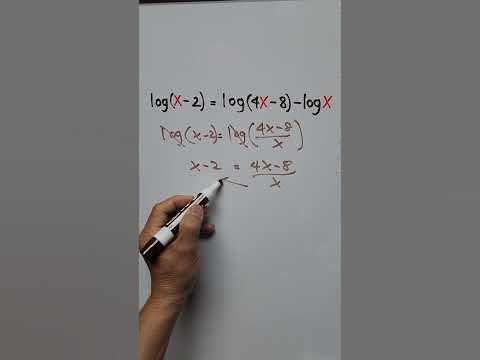 log(x-2) = log(4x-8)-logx
log(x-2)=log(4x-8/x)
x-2 = 4x-8/x